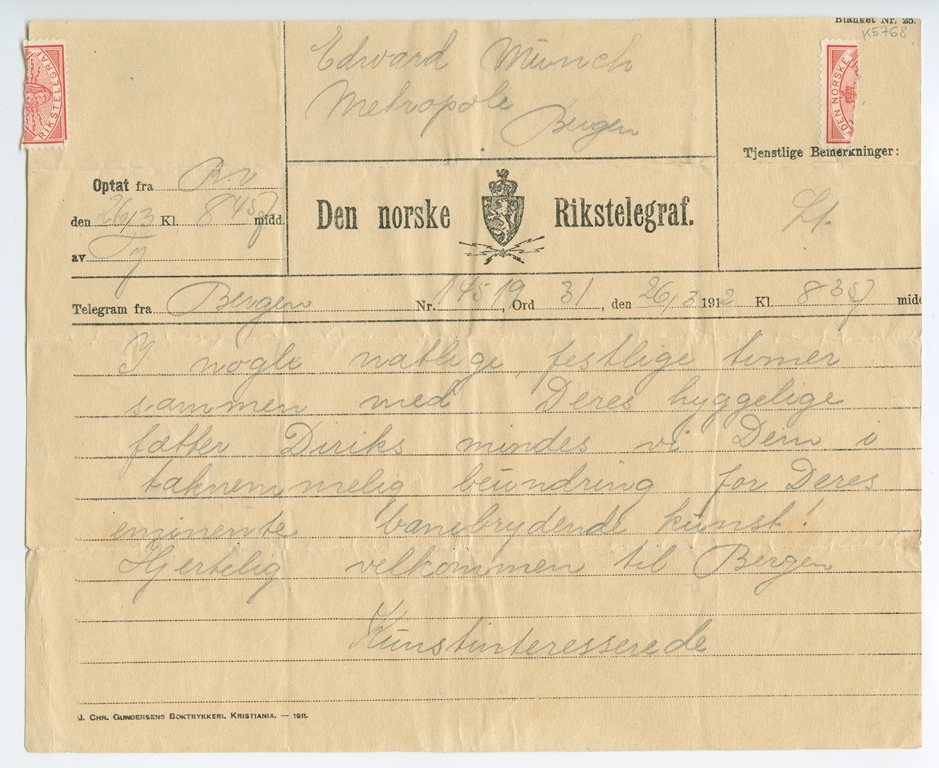 Blanket Nr. 25.
K5768
RIKSTELEGRAF
DEN NORSKE
Edvard Münch
Metropole
Bergen
Tjenstlige Bemerkninger:
Optat fra
den 26/3 Kl. 845 midd.
av
Den norske Rikstelegraf.
Telegram fra Bergen Nr. 14519, Ord 31, den 26/3 1912 Kl. 835 midd
I nogle natlige, festlige timer
sammen med Deres hyggelige
fætter Diriks mindes vi Dem i
taknemmelig beundring for Deres
eminente banebrydende kunst!
Hjertelig velkommen til Bergen
Kunstinteresserede
J. CHR. GUNDERSENS BOKTRYKKERI, KRISTIANIA. — 1911.